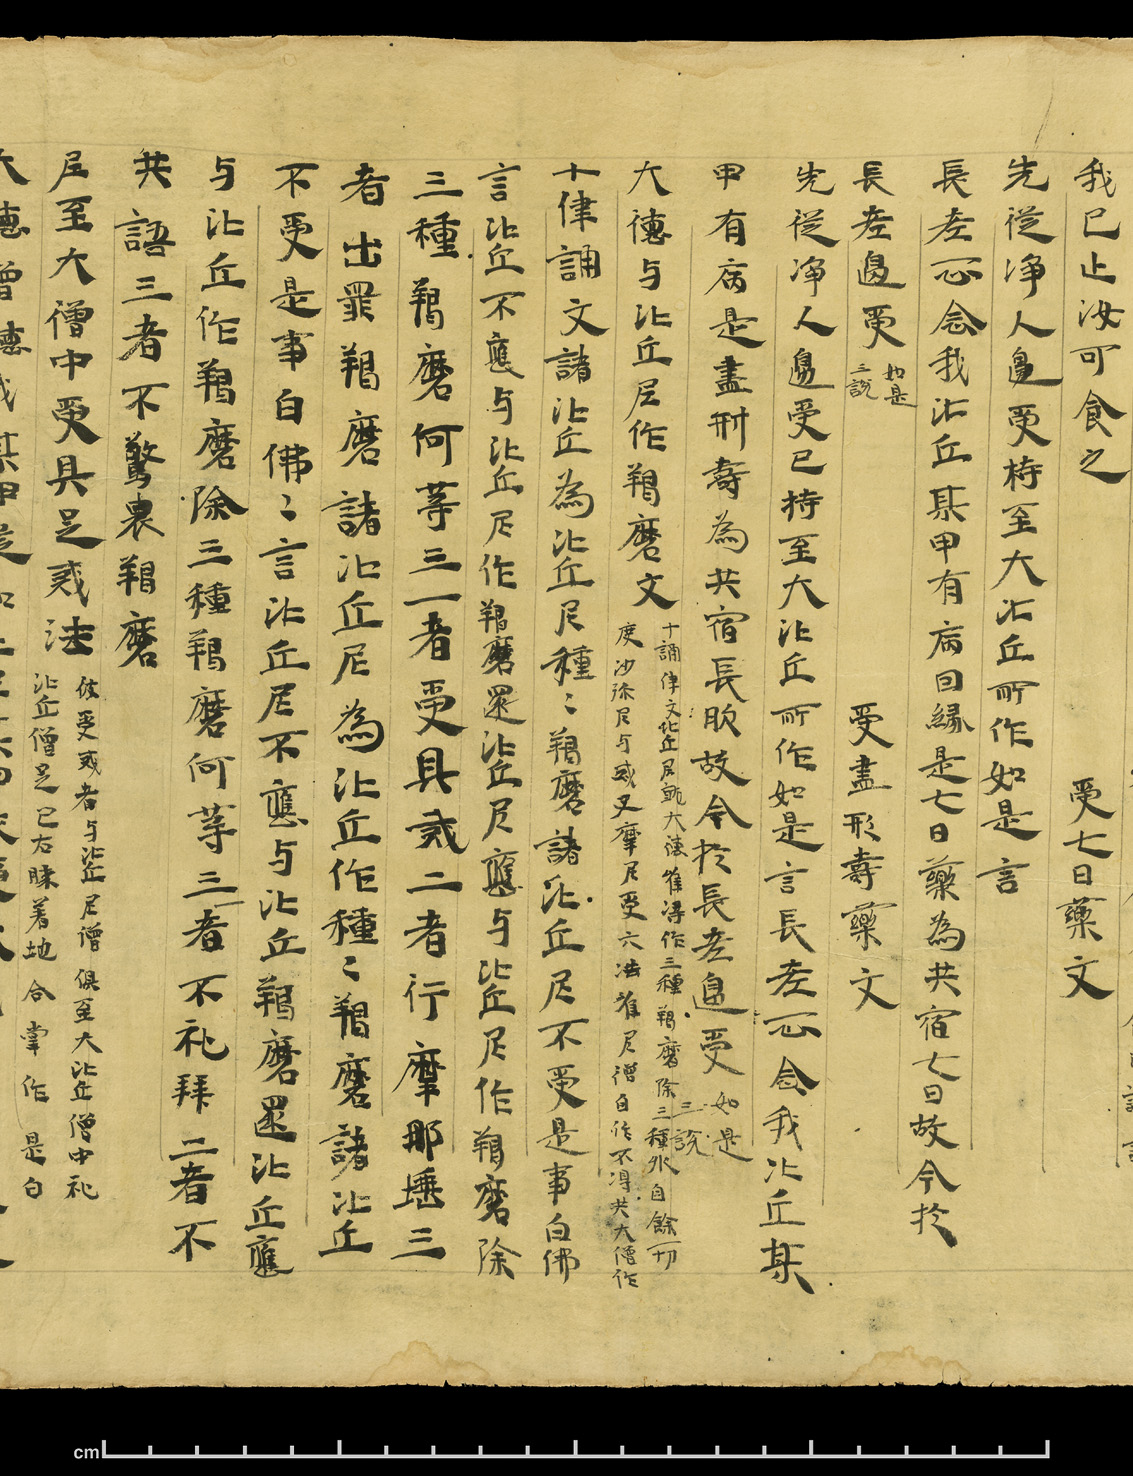 我已止汝可食之
受七日藥文
先從淨人邊受持至大比丘所作如是言
長老一心念我比丘某甲有病因緣是七日藥為共宿七日故今於
長老邊受
如是
三說
受盡形壽藥文
先從淨人邊受已持至大比丘所作如是言長老一心念我比丘某
甲有病是盡形壽為共宿長服故今於長老邊受
如是
三說
大德与比丘尼作羯磨文
十誦律文比丘尼
大德唯得作三種羯磨除三種外自餘一切
度沙弥尼与戒叉摩尼受六法唯尼僧自作不得共大僧作
十律誦文諸比丘為比丘尼種〻羯磨諸比丘尼不受是事白佛
言比丘不應与比丘尼作羯磨還比丘尼應与比丘尼作羯磨除
三種羯磨何等三一者受具戒二者行摩那埵三
者出罪羯磨諸比丘尼為比丘作種〻羯磨諸比丘
不受是事白佛〻言比丘尼不應与比丘羯磨還比丘應
与比丘作羯磨除三種羯磨何等三一者不礼拜二者不
共語三者不驚裏羯磨
尼至大僧中受具足戒法
彼受戒者与比丘尼僧俱至大比丘僧中礼
比丘僧足已右膝著地合掌作是白
大德僧